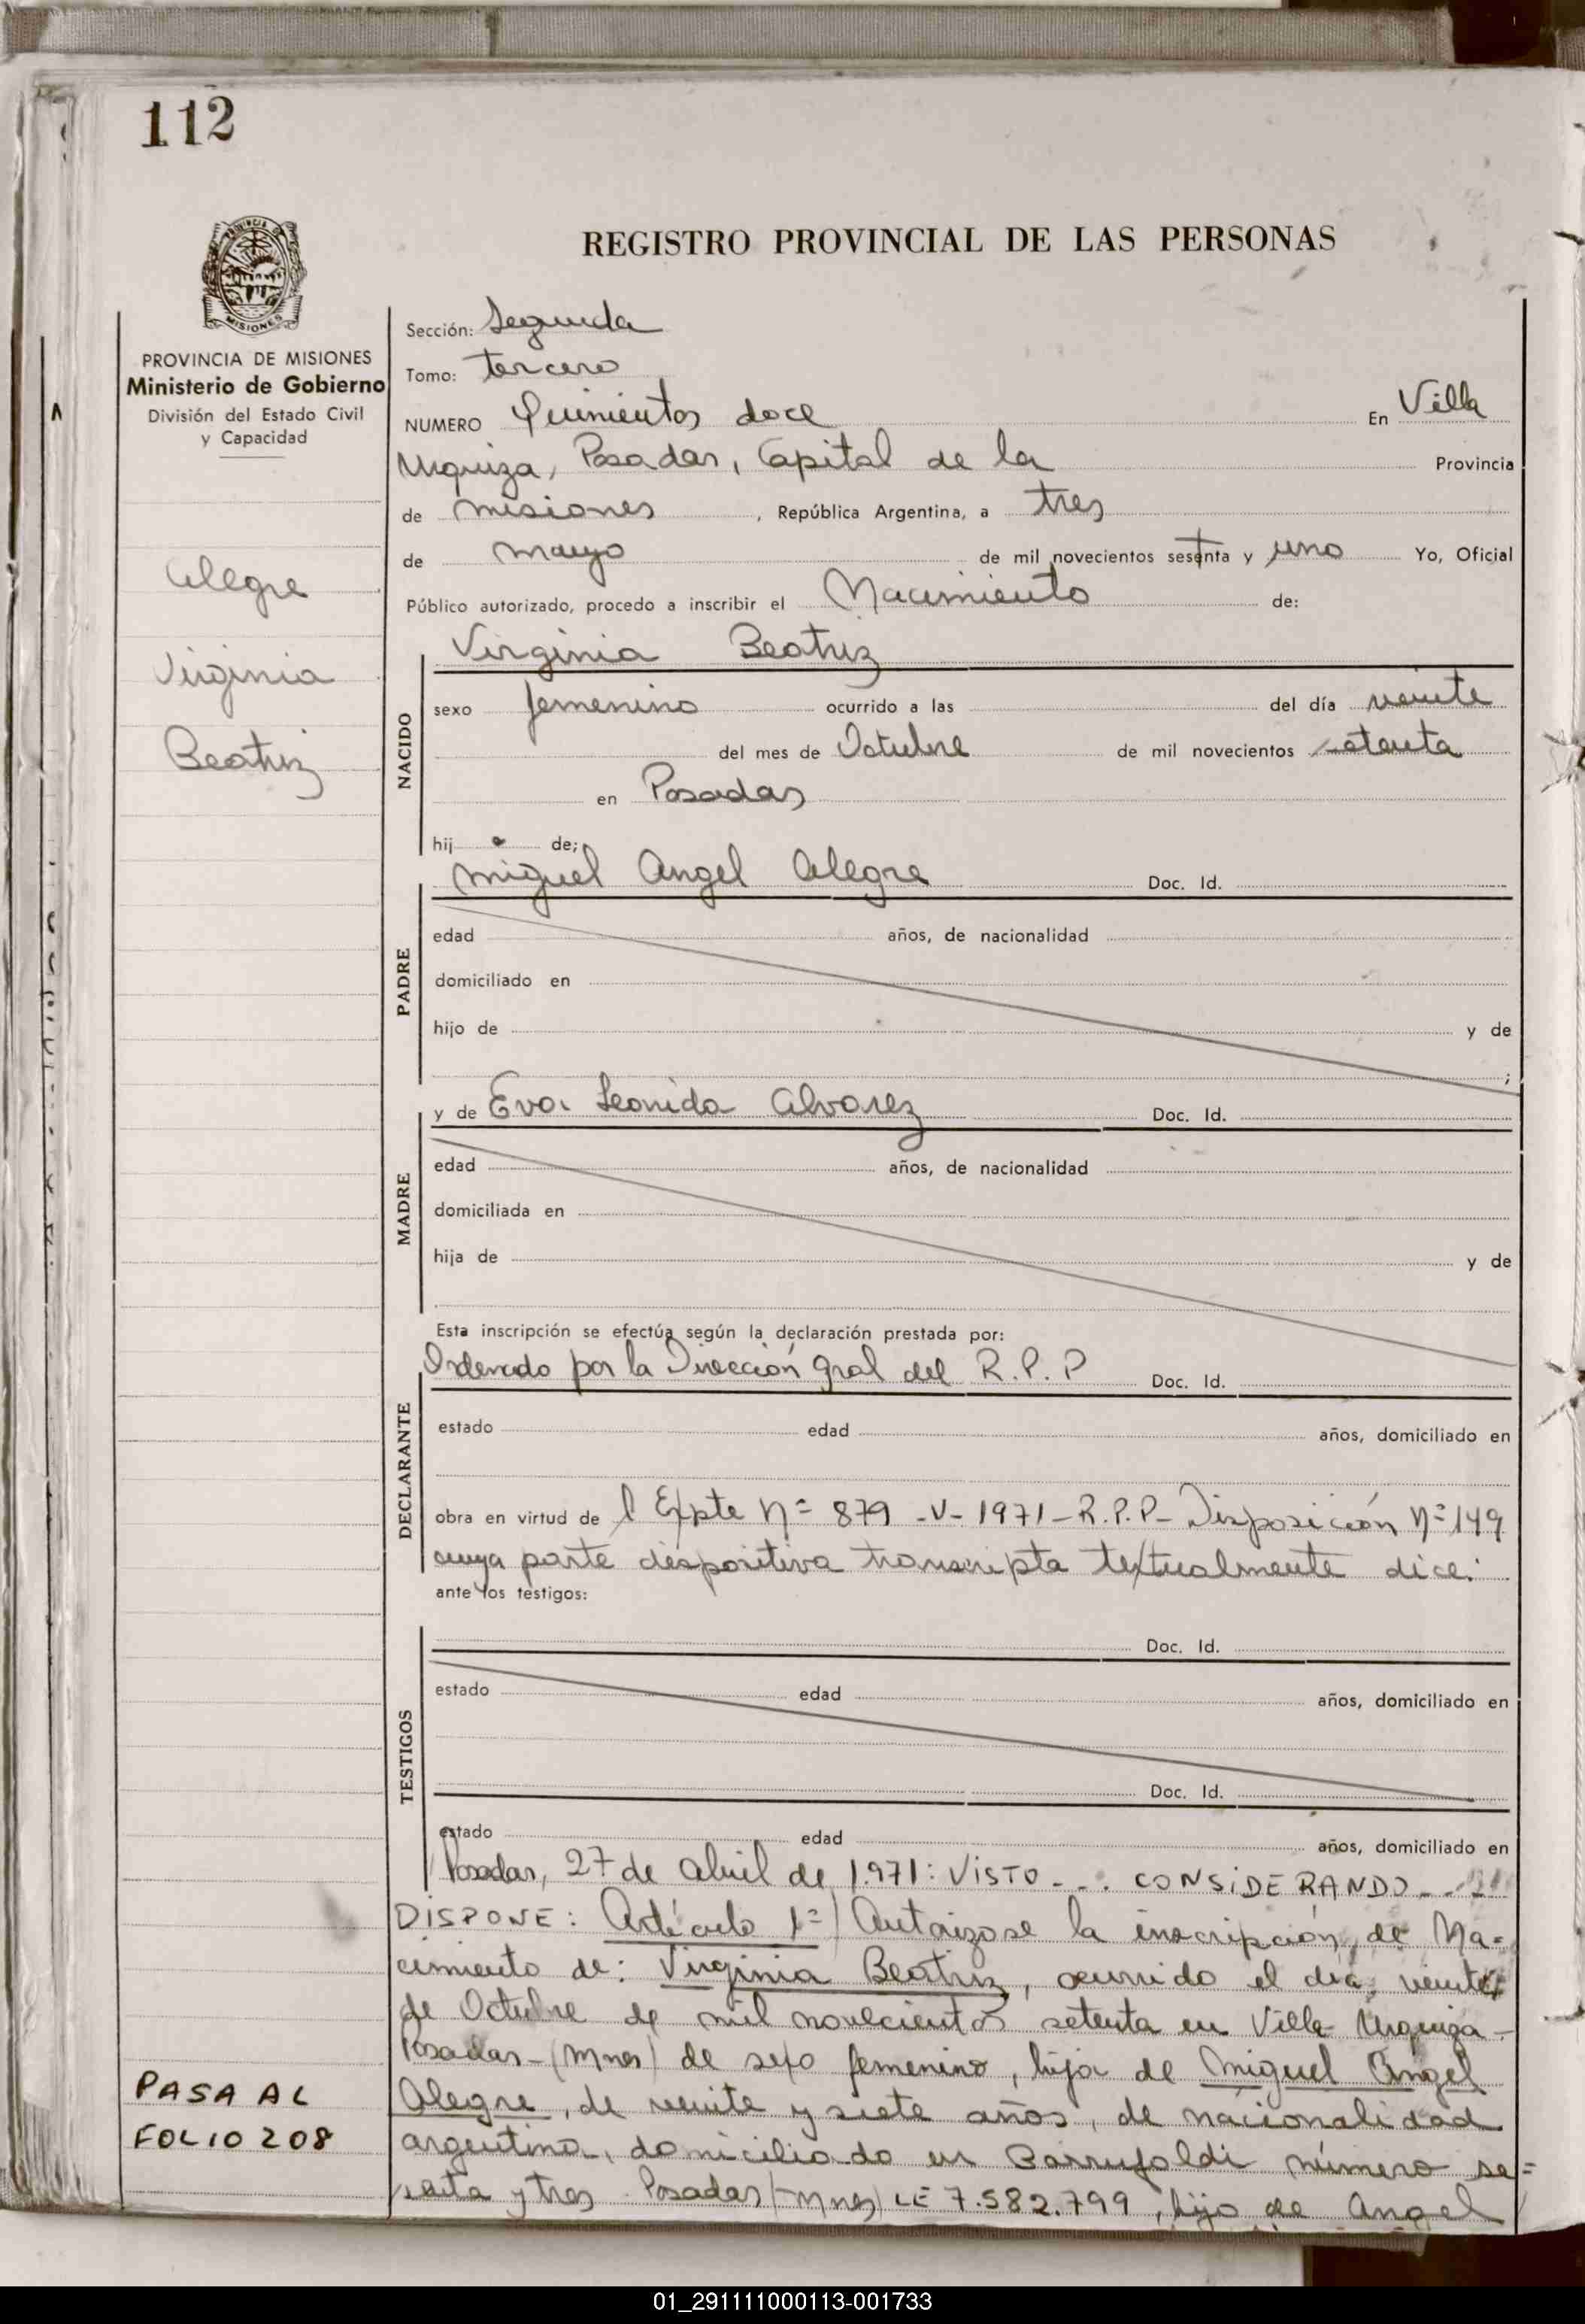 112
REGISTRO PROVINCIAL DE LAS PERSONAS
PROVINCIA DE MISIONES
Ministerio de Gobierno
División del Estado Civil
y Capacidad
Alegre
Virginia
Beatriz
Sección: Segunda
Tomo: tercero
NUMERO Quinientos doce En Villa
Urquiza, Posadas, Capital de la Provincia
de misiones, República Argentina, a tres
de mayo de mil novecientos setenta y uno Yo, Oficial
Público autorizado, procedo a inscribir el Nacimiento de:
NACIDO
Virginia Beatriz
sexo femenino ocurrido a las del día veinte
del mes de Octubre de mil novecientos setenta
en Posadas
hija de;
PADRE
Miguel Angel Alegre Doc. Id.
edad años, de nacionalidad
domiciliado en
hijo de y de
;
MADRE
y de Eva Leonida Alvarez Doc. Id.
edad años, de nacionalidad
domiciliada en
hija de y de
Esta inscripción se efectúa según la declaración prestada por:
DECLARANTE
Ordenado por la Dirección Gral del R.P.P Doc. Id.
estado edad años, domiciliado en
obra en virtud de l Expte Nº 879 -V- 1971-R.P.P- Disposición Nº 149
cuya parte dispositiva transcripta textualmente dice:
ante los testigos:
TESTIGOS
Doc. Id.
estado edad años, domiciliado en
Doc. Id.
estado edad años, domiciliado en
Posadas, 27 de Abril de 1.971: VISTO... CONSIDERANDO...
DISPONE: Artículo 1º) Autorizase la inscripción de Na=
cimiento de: Virginia Beatriz, ocurrido el día veinte
de Octubre de mil novecientos setenta en Villa Urquiza-
Posadas-(Mnes) de sexo femenino, hija de Miguel Angel
Alegre, de veinte y siete años, de nacionalidad
argentina, domiciliado en número se=
senta y tres Posadas (Mnes) LE 7.582.799, hijo de Angel
PASA AL
FOLIO 208
01_291111000113-001733